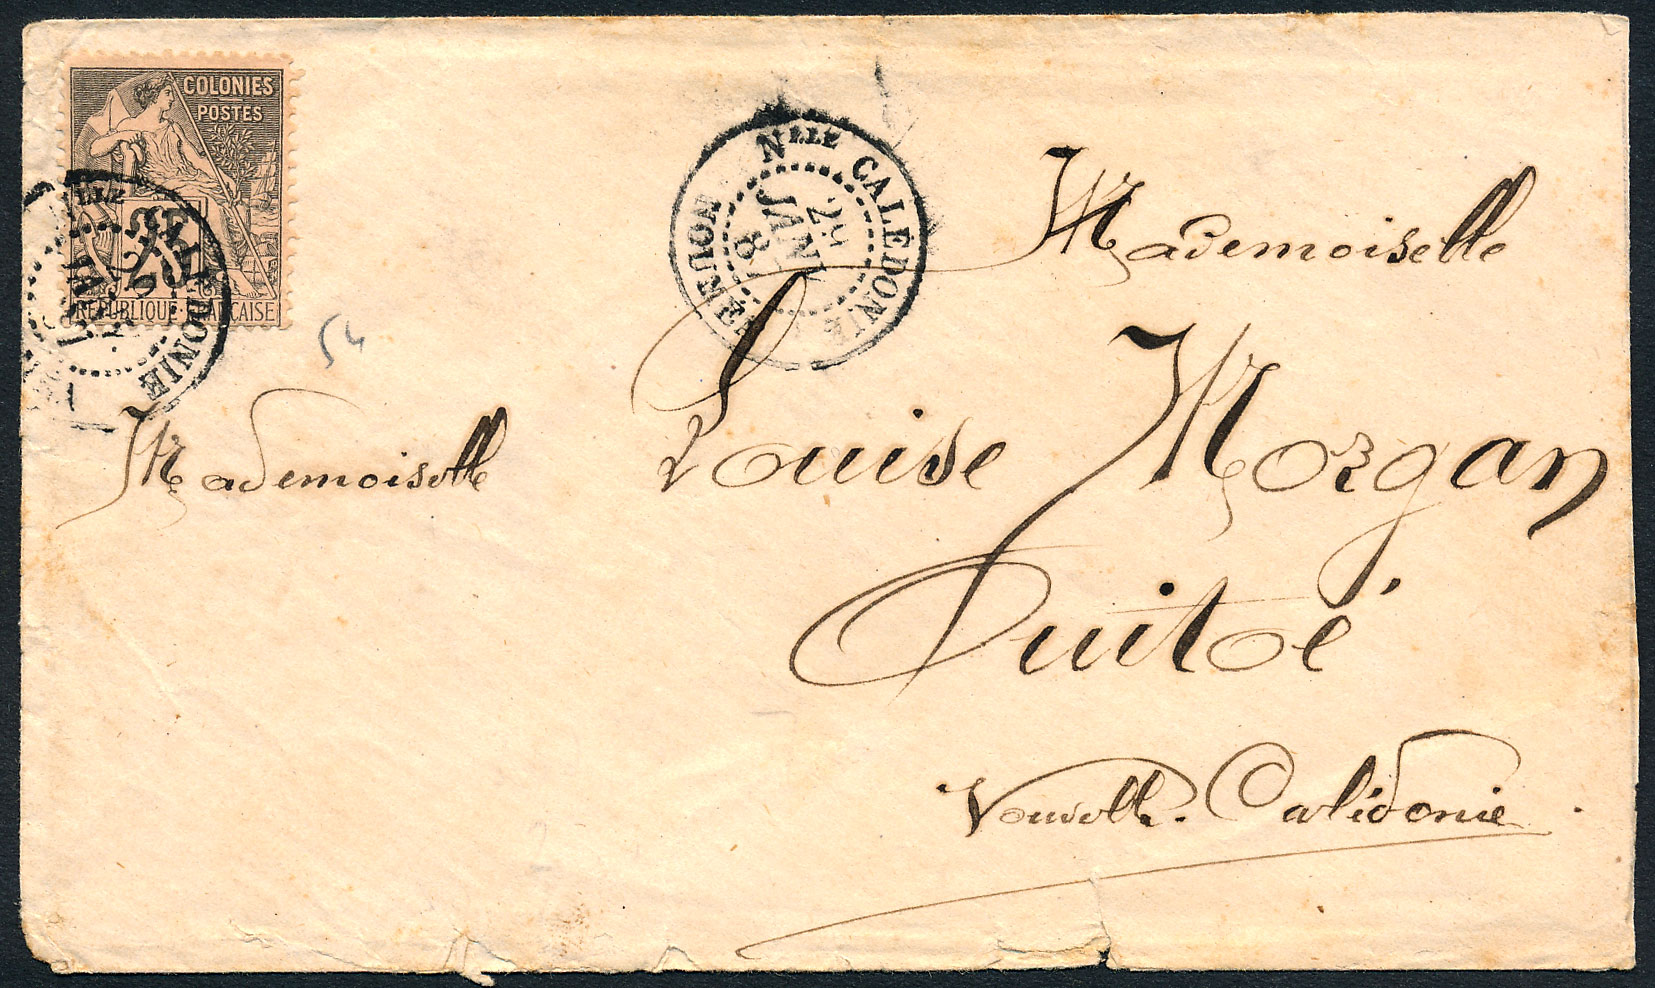 COLONIES
POSTES
25
RÉPUBLIQUE FRANÇAISE
CALÉDONIE
Nlle CALÉDONIE
JANV
54
Mademoiselle
Mademoiselle
Louise Morgan
Ouitoé
Nouvelle-Calédonie